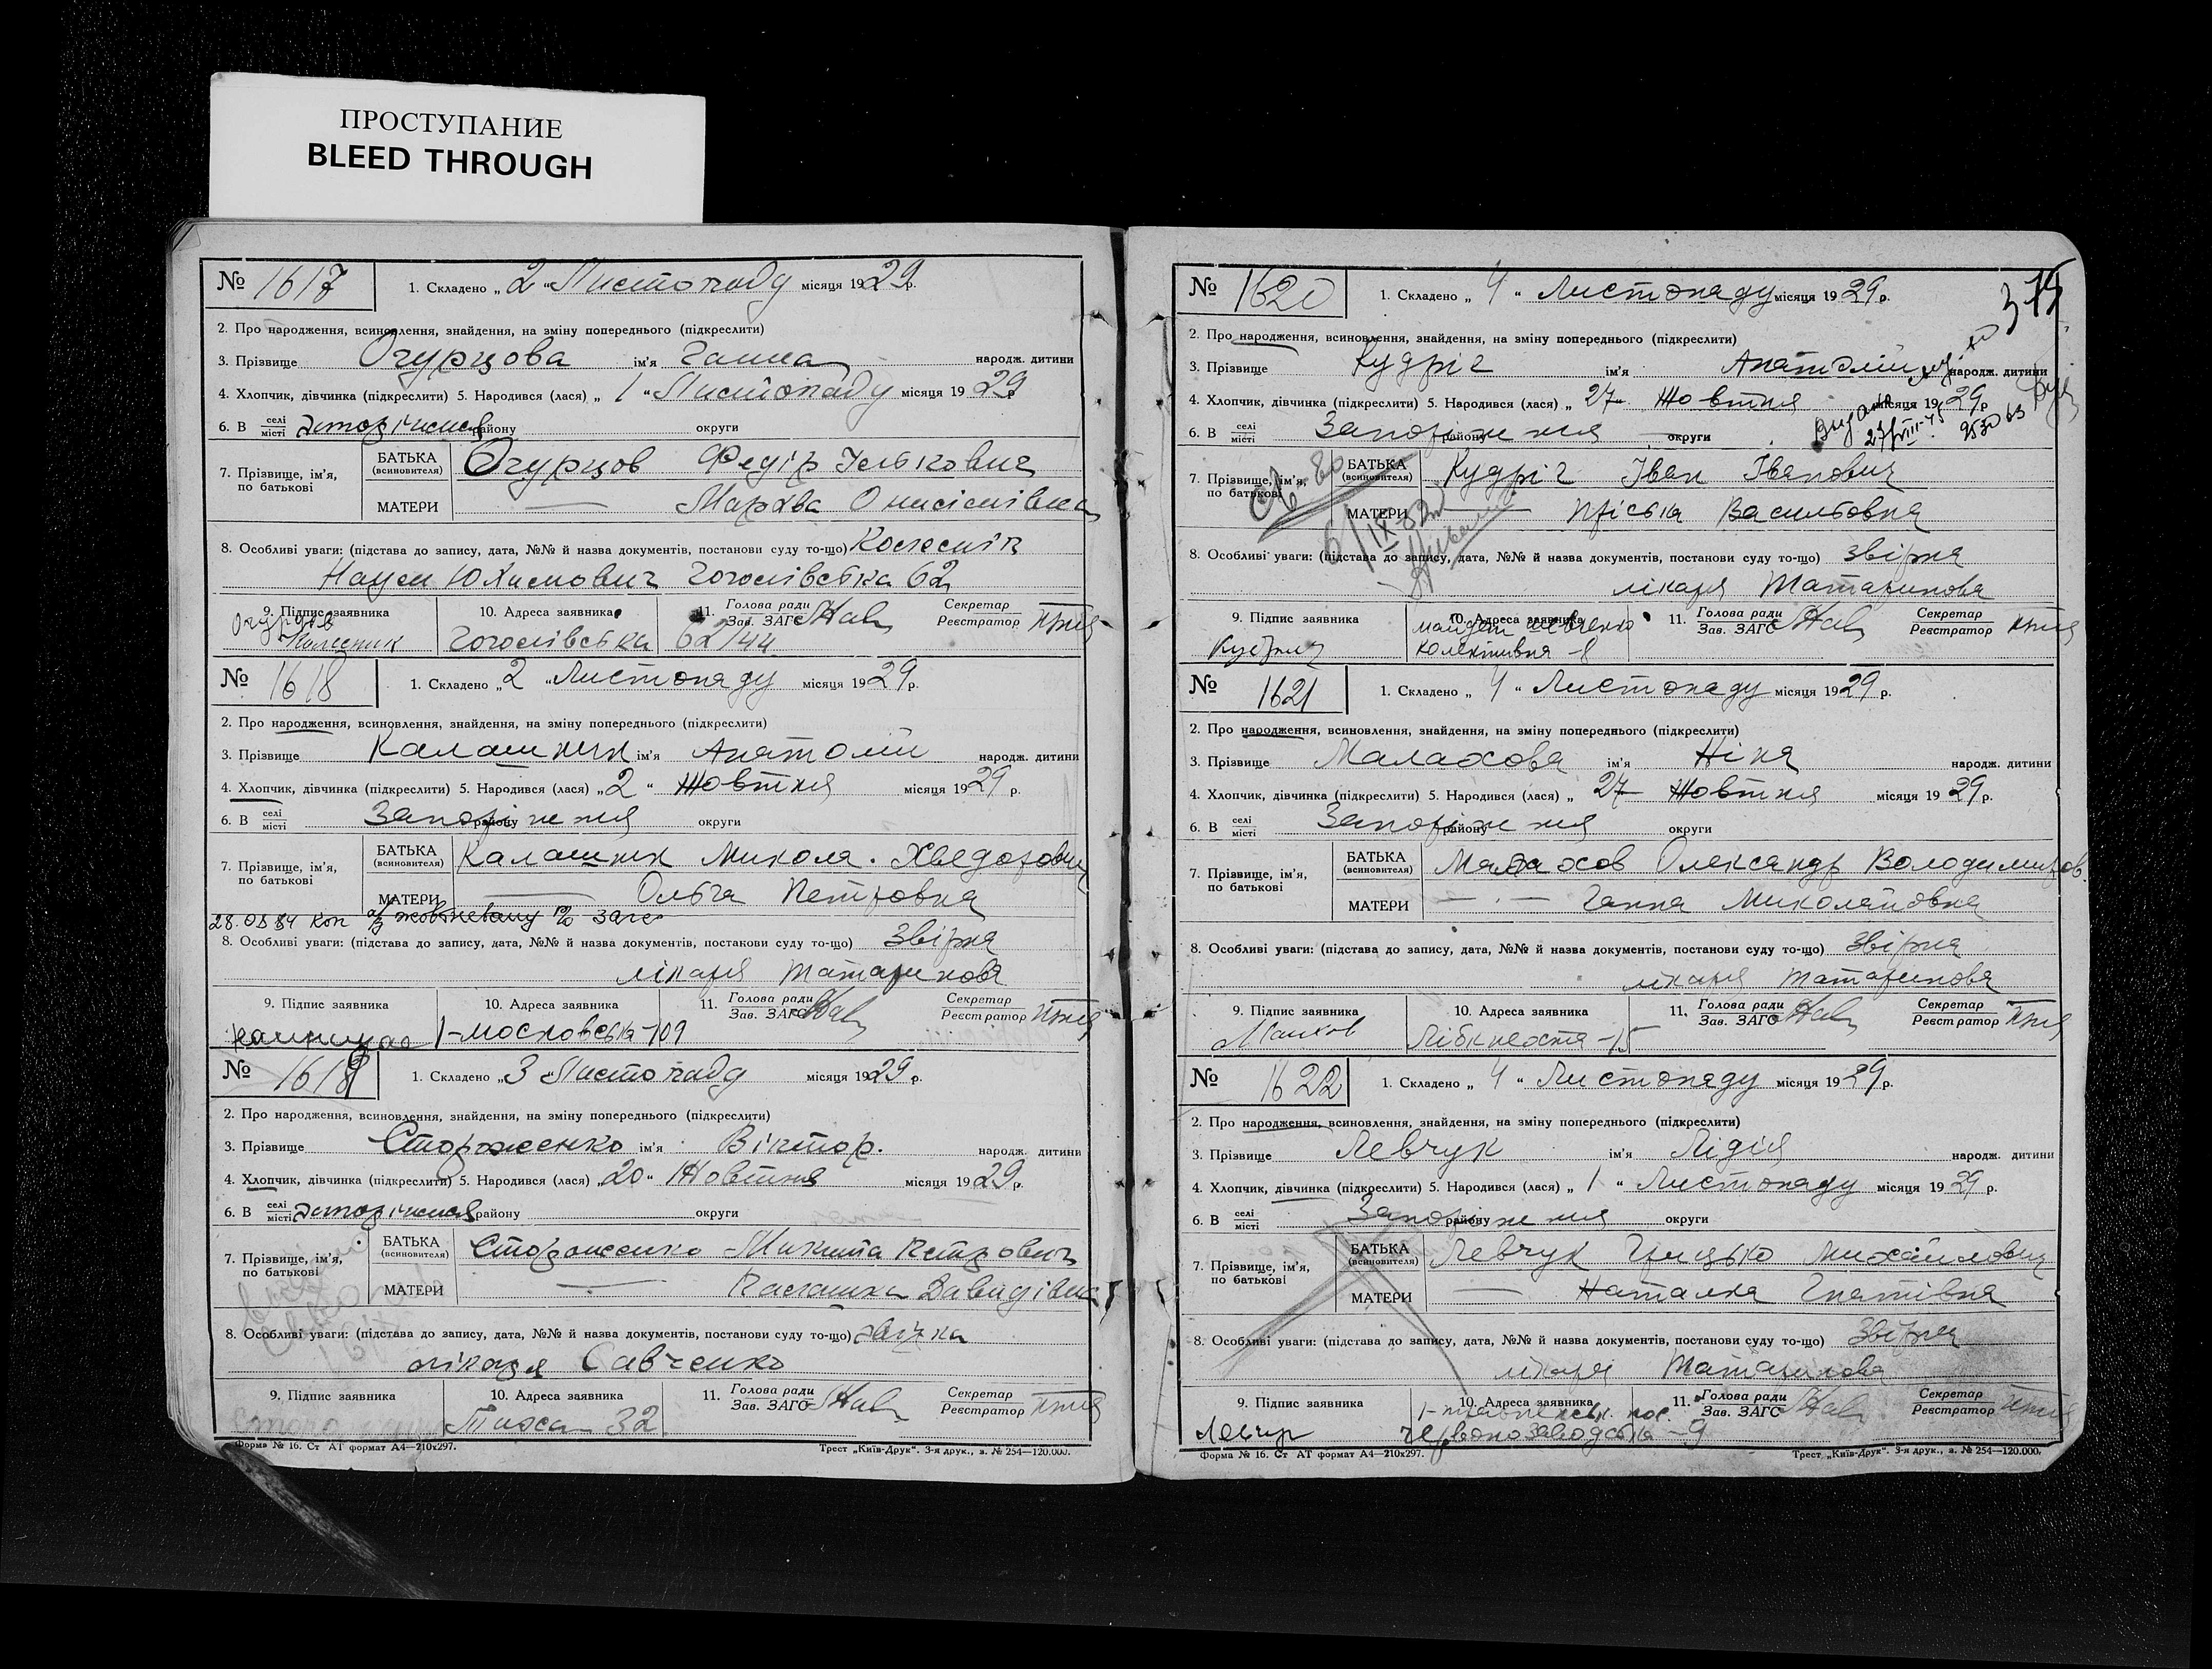 ПРОСТУПАНИЕ
BLEED THROUGH
№ 1617 1. Складено „ 2 " Листопаду місяця 1929 р.
2. Про народження, всиновлення, знайдення, на зміну попереднього (підкреслити)
3. Прізвище Огурцова ім'я Ганна народж. дитини
4. Хлопчик, дівчинка (підкреслити) 5. Народився (лася) „ 1 " Листопаду місяця 1929 р.
6. В селі місті Запоріжжя району округи
7. Прізвище, ім'я, по батькові БАТЬКА (всиновителя) Огурцов Федір
МАТЕРИ — Марфа Онисімівна
8. Особливі уваги: (підстава до запису, дата, №№ й назва документів, постанови суду то-що) Колеснік
Наум Юхимович Гоголівська 62
9. Підпис заявника 10. Адреса заявника 11. Голова ради Зав. ЗАГС Секретар Реєстратор
Колесник Гоголівська 62/44
№ 1618 1. Складено „ 2 " Листопаду місяця 1929 р.
2. Про народження, всиновлення, знайдення, на зміну попереднього (підкреслити)
3. Прізвище Калашник ім'я Анатолій народж. дитини
4. Хлопчик, дівчинка (підкреслити) 5. Народився (лася) „ 2 " Жовтня місяця 1929 р.
6. В селі місті Запоріжжя району округи
7. Прізвище, ім'я, по батькові БАТЬКА (всиновителя) Калашник Микола Хведорович
МАТЕРИ — Ольга Петровна
8. Особливі уваги: (підстава до запису, дата, №№ й назва документів, постакови суду то-що) Звірка
лікаря Татаринова
9. Підпис заявника 10. Адреса заявника 11. Голова ради Зав. ЗАГС Секретар Реєстратор
1-московська-109
№ 1619 1. Складено „ 3 " Листопаду місяця 1929 р.
2. Про народження, всиновлення, знайдення, на зміну попереднього (підкреслити)
3. Прізвище Стороженко ім'я Віктор. народж. дитини
4. Хлопчик, дівчинка (підкреслити) 5. Народився (лася) „ 20 " Жовтня місяця 1929 р.
6. В селі місті Запоріжжя району округи
7. Прізвище, ім'я, по батькові БАТЬКА (всиновителя) Стороженко Микита Петрович
МАТЕРИ — Давидівна
8. Особливі уваги: (підстава до запису, дата, №№ й назва документів, постанови суду то-що) звірка
лікаря Савченко
9. Підпис заявника 10. Адреса заявника 11. Голова ради Зав. ЗАГС Секретар Реєстратор
Тиха 32
Форма № 16. Ст АТ формат А4—210х297. Трест „Київ-Друк". 3-я друк., з. № 254—120.000.
№ 1620 1. Складено „ 4 " Листопаду місяця 1929 р. 375
2. Про народження, всиновлення, знайдення, на зміну попереднього (підкреслити)
3. Прізвище Кудріч ім'я Анатолій народж. дитини
4. Хлопчик, дівчинка (підкреслити) 5. Народився (лася) „ 27 " Жовтня місяця 1929 р.
6. В селі місті Запоріжжя району округи
7. Прізвище, ім'я, по батькові БАТЬКА (всиновителя) Кудріч Іван Іванович
МАТЕРИ — Пріська Васильовна
8. Особливі уваги: (підстава до запису, дата, №№ й назва документів, постанови суду то-що) Звірка
лікаря Татаринова
9. Підпис заявника 10. Адреса заявника 11. Голова ради Зав. ЗАГС Секретар Реєстратор
майдан Шевченко
Колективна - 8
№ 1621 1. Складено „ 4 " Листопаду місяця 1929 р.
2. Про народження, всиновлення, знайдення, на зміну попереднього (підкреслити)
3. Прізвище Малахова ім'я Ніна народж. дитини
4. Хлопчик, дівчинка (підкреслити) 5. Народився (лася) „ 27 Жовтня місяця 1929 р.
6. В селі місті Запоріжжя району округи
7. Прізвище, ім'я, по батькові БАТЬКА (всиновителя) Малахов Олександр Володимиров.
МАТЕРИ — Ганна Миколайовна
8. Особливі уваги: (підстава до запису, дата, №№ й назва документів, постанови суду то-що) Звірка
лікаря Татаринова
9. Підпис заявника 10. Адреса заявника 11. Голова ради Зав. ЗАГС Секретар Реєстратор
Лібкнехта - 15
№ 1622 1. Складено „ 4 " Листопаду місяця 1929 р.
2. Про народження, всиновлення, знайдення, на зміну попереднього (підкреслити)
3. Прізвище Левчук ім'я Лідія народж. дитини
4. Хлопчик, дівчинка (підкреслити) 5. Народився (лася) „ 1 " Листопаду місяця 1929 р.
6. В селі місті Запоріжжя району округи
7. Прізвище, ім'я, по батькові БАТЬКА (всиновителя) Левчук Грицько Михайлович
МАТЕРИ — Наталка Гнатівна
8. Особливі уваги: (підстава до запису, дата, №№ й назва документів, постанови суду то-що) Звірка
лікаря Татаринова
9. Підпис заявника 10. Адреса заявника 11. Голова ради Зав. ЗАГС Секретар Реєстратор
Червонозаводська - 9
Форма № 16. Ст АТ формат А4—210х297. Трест „Київ-Друк". 3-я друк., з. № 254—120.000.